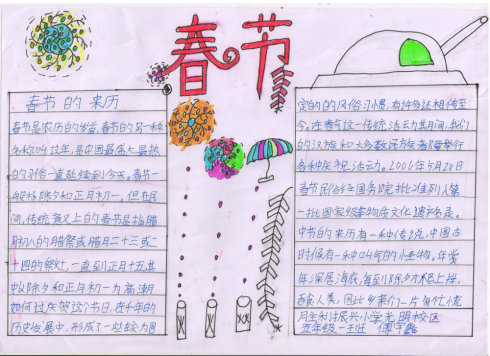 春节
春节的来历
春节是农历的岁首,春节的另一种
名称叫过年,是中国最盛大,最热
的
一直延续到今天。春节一
般指除夕和正月初一。但在民
间,传统意义上的春节是指腊
月初八的腊祭或腊月二十三或二
十四的祭灶,一直到正月十五其
中以除夕和正月初一为高潮
如何过庆贺这个节日,在千年的
历史发展中,形成了一些较为固
定的的风俗习惯,有许多还相传至
今。在春节这一传统
期间,我们
的汉族和大多数
民族都要举行
各种庆祝活动。2006年5月20日
春节民俗经国务院批准列入第
一批国家级非物质文化遗产名录。
的来历有一种传说,中国古
时候有一种叫
年深居海底,每到除夕才
上岸,
人类,因此
月牙
振兴小学光明校区
五年级一班